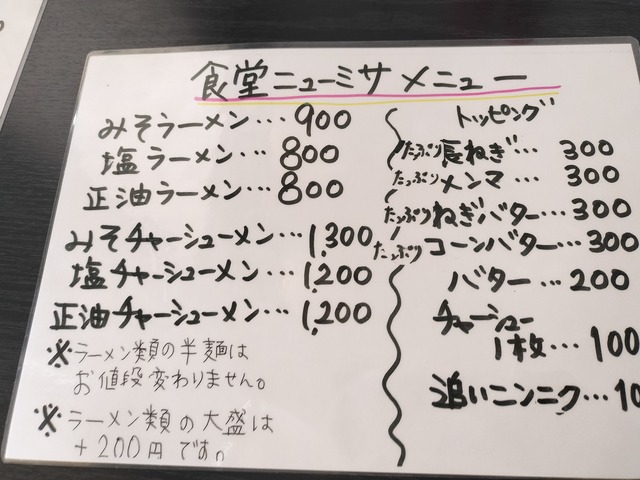 食堂ニューミサメニュー
みそラーメン…900
塩ラーメン…800
正油ラーメン…800
みそチャーシューメン…1,300
塩チャーシューメン…1,200
正油チャーシューメン…1,200
※ラーメン類の半麺は
お値段変わりません。
※ラーメン類の大盛は
+200円です。
トッピング
たっぷり長ねぎ…300
たっぷりメンマ…300
たっぷりねぎバター…300
たっぷりコーンバター…300
バター…200
チャーシュー
1枚…100
追いニンニク…10